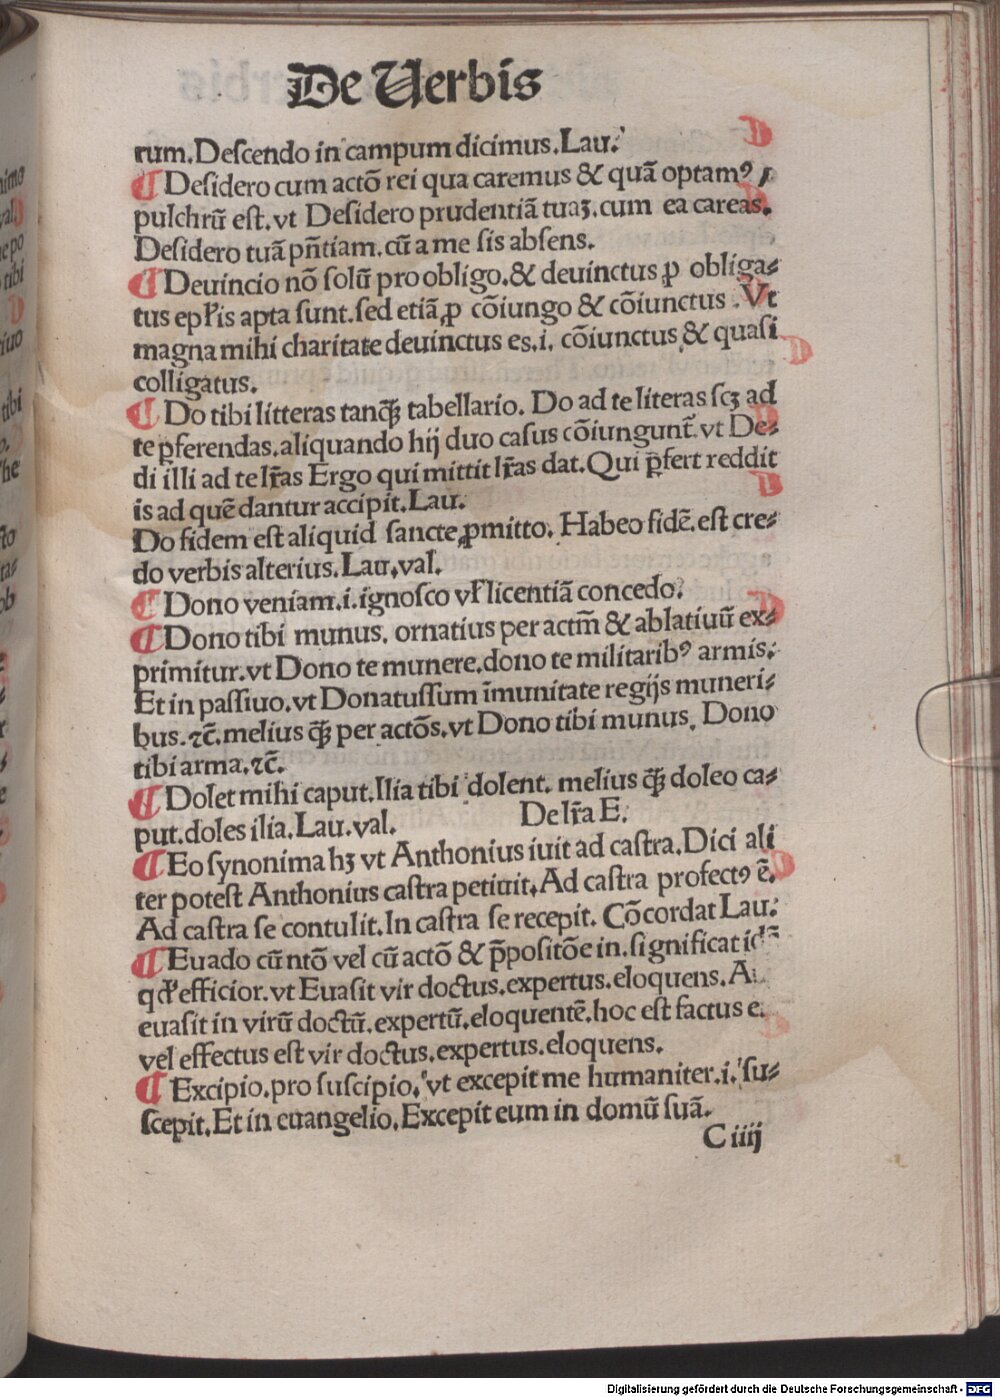 De Uerbis
rum.Deſcendo in campum dicimus.Lau.
¶ Deſidero cum actō rei qua caremus & quā optamꝰ ⁊
pulchrū eſt.vt Deſidero prudentiā tuaꝫ.cum ea careas.
Deſidero tuā pñtiam.cū a me ſis abſens.
¶ Deuincio nō ſolū pro obligo.& deuinctus ꝓ obliga⸗
tus epl̄is apta ſunt.ſed etiā ꝓ cōiungo & cōiunctus .Vt
magna mihi charitate deuinctus es.i. cōiunctus & quaſi
colligatus.
¶ Do tibi litteras tanq̄ꝫ tabellario. Do ad te literas ſcꝫ ad
te ꝑferendas.aliquando hij duo caſus cōiungunt̃.vt De⸗
di illi ad te lr̄as Ergo qui mittit lr̄as dat.Qui p̄fert reddit
is ad quē dantur accipit.Lau.
Do fidem eſt aliquid ſancte ꝓmitto. Habeo fidē.eſt cre⸗
do verbis alterius.Lau.val.
¶ Dono veniam.i.ignoſco vl̄ licentiā concedo.
¶ Dono tibi munus. ornatius per actm̄ & ablatiuū ex⸗
primitur.vt Dono te munere.dono te militaribꝰ armis.
Et in paſſiuo.vt Donatus ſum īmunitate regijs muneri⸗
bus.⁊c̄.melius q̄ꝫ per actōs.vt Dono tibi munus. Dono
tibi arma.⁊c̄.
¶ Dolet mihi caput.Ilia tibi dolent. melius q̄ꝫ doleo ca⸗
put.doles ilia.Lau.val. De lr̄a E.
¶ Eo ſynonima hꝫ vt Anthonius iuit ad caſtra.Dici ali
ter poteſt Anthonius caſtra petiuit.Ad caſtra profectꝰ ē.
Ad caſtra ſe contulit.In caſtra ſe recepit. Cōcordat Lau.
¶ Euado cū ntō vel cū actō & p̄poſitōe in.ſignificat idē
qd̄ efficior.vt Euaſit vir doctus.expertus.eloquens.
euaſit in virū doctū.expertū.eloquentē.hoc eſt factus e.
vel effectus eſt vir doctus.expertus.eloquens.
¶ Excipio.pro ſuſcipio. vt excepit me humaniter.i. ſu⸗
ſcepit.Et in euangelio.Excepit eum in domū ſuā.
C iiij
Digitalisierung gefördert durch die Deutsche Forschungsgemeinschaft - DFG